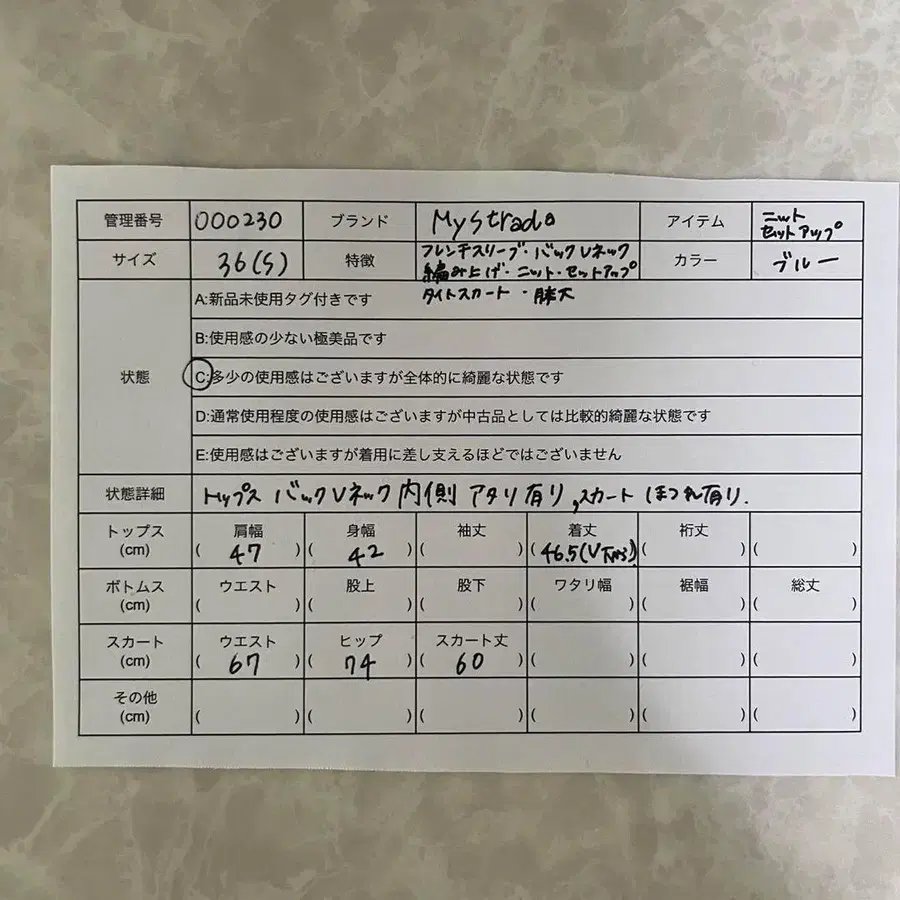 管理番号 000230 ブランド Mystrada アイテム ニット セットアップ
サイズ 36(S) 特徴 フレンチスリーブ・バックVネック カラー ブルー
編み上げ・ニット・セットアップ
タイトスカート・膝丈
状態
A:新品未使用タグ付きです
B:使用感の少ない極美品です
C:多少の使用感はございますが全体的に綺麗な状態です
D:通常使用程度の使用感はございますが中古品としては比較的綺麗な状態です
E:使用感はございますが着用に差し支えるほどではございません
状態詳細 トップス バックVネック内側 アタリ有り,スカート ほつれ有り.
トップス (cm) 肩幅 (47) 身幅 (42) 袖丈 ( ) 着丈 (46.5(V下から)) 裄丈 ( ) ( )
ボトムス (cm) ウエスト ( ) 股上 ( ) 股下 ( ) ワタリ幅 ( ) 裾幅 ( ) 総丈 ( )
スカート (cm) ウエスト (67) ヒップ (74) スカート丈 (60) ( ) ( ) ( )
その他 (cm) ( ) ( ) ( ) ( ) ( ) ( )